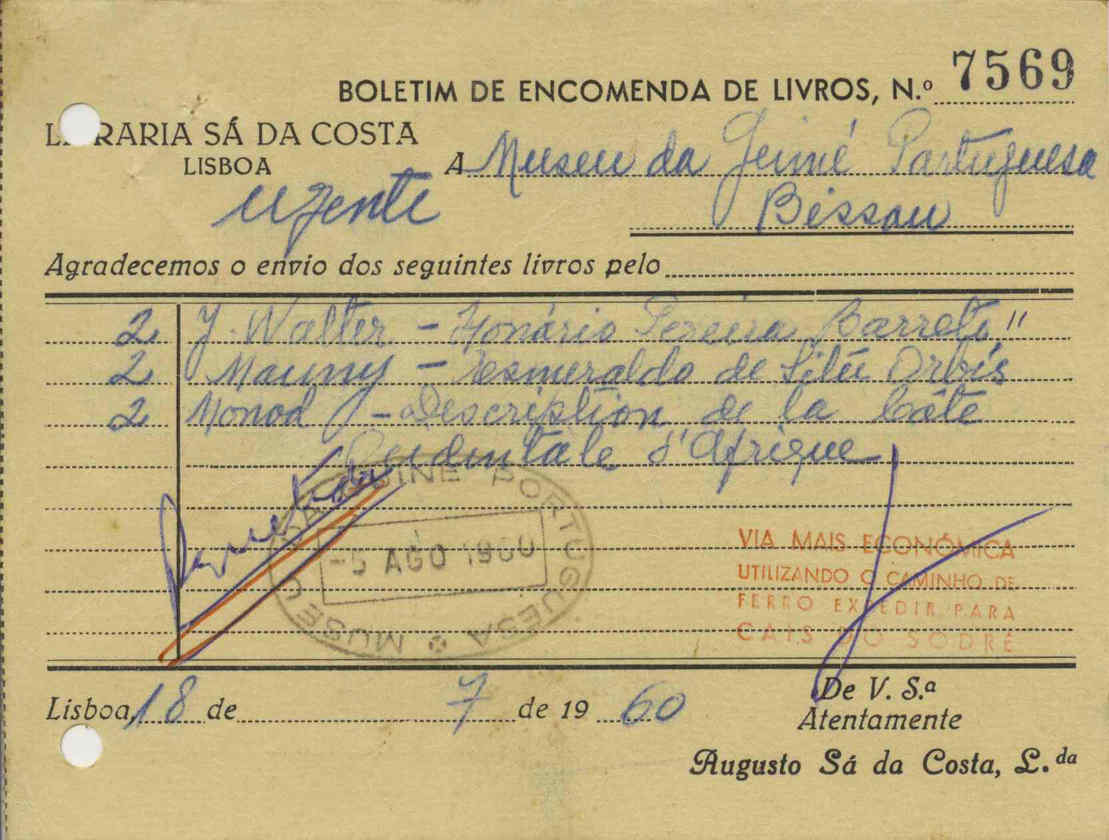 BOLETIM DE ENCOMENDA DE LIVROS, N.º 7569
LIVRARIA SÁ DA COSTA
LISBOA
A Museu da Guiné Portuguesa
Urgente
Bissau
Agradecemos o envio dos seguintes livros pelo
2 J. Walter - Honório Pereira Barreto"
2 Mauny - Esmeraldo de Situ Orbis
2 Monod - Description de la Côte
Occidentale d'Afrique
MUSEU DA GUINÉ PORTUGUESA
-5 AGO 1960
VIA MAIS ECONÓMICA
UTILIZANDO O CAMINHO DE
FERRO EXPEDIR PARA
CAIS DO SODRÉ
Lisboa, 18 de 7 de 1960
De V. S.ª
Atentamente
Augusto Sá da Costa, L.da